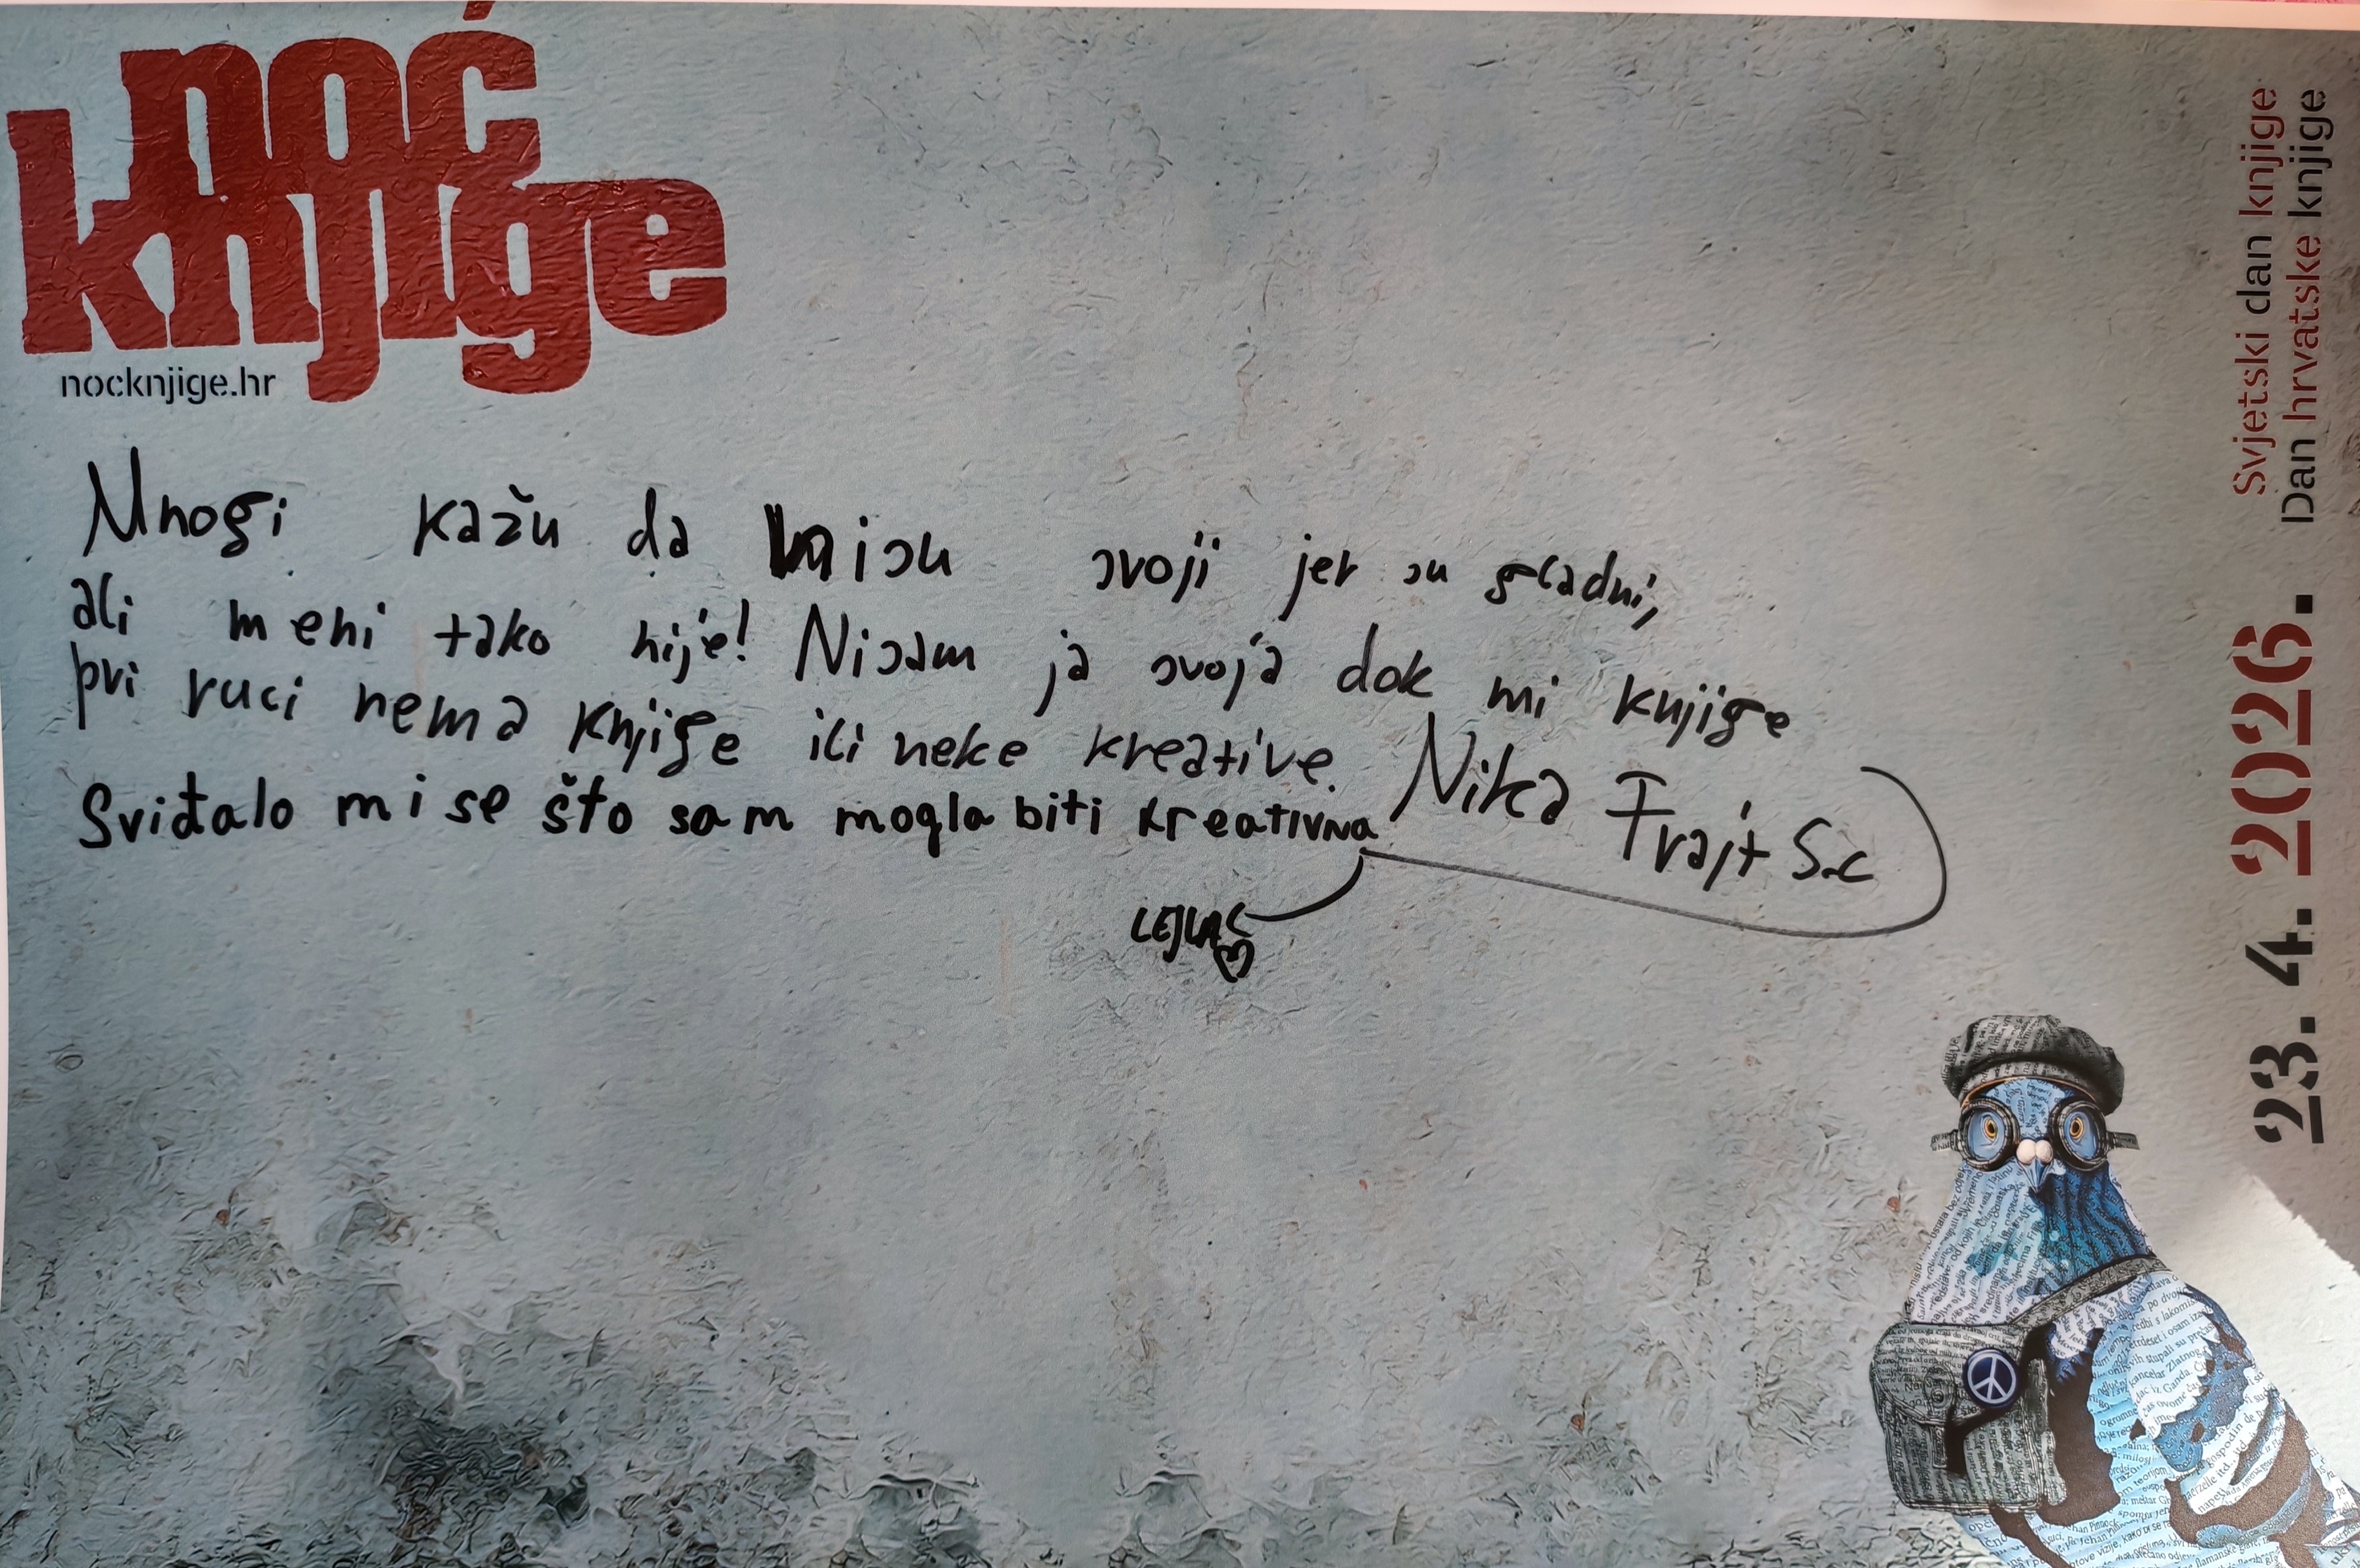 noć
knjige
nocknjige.hr
Mnogi kažu da nisu svoji jer su gladni,
ali meni tako nije! Nisam ja svoja dok mi knjige
pri ruci nema knjige ili neke kreative. Nika Frajt 5.c
Sviđalo mi se što sam mogla biti kreativna
LEJLA Ć
Svjetski dan knjige
Dan hrvatske knjige
23. 4. 2026.